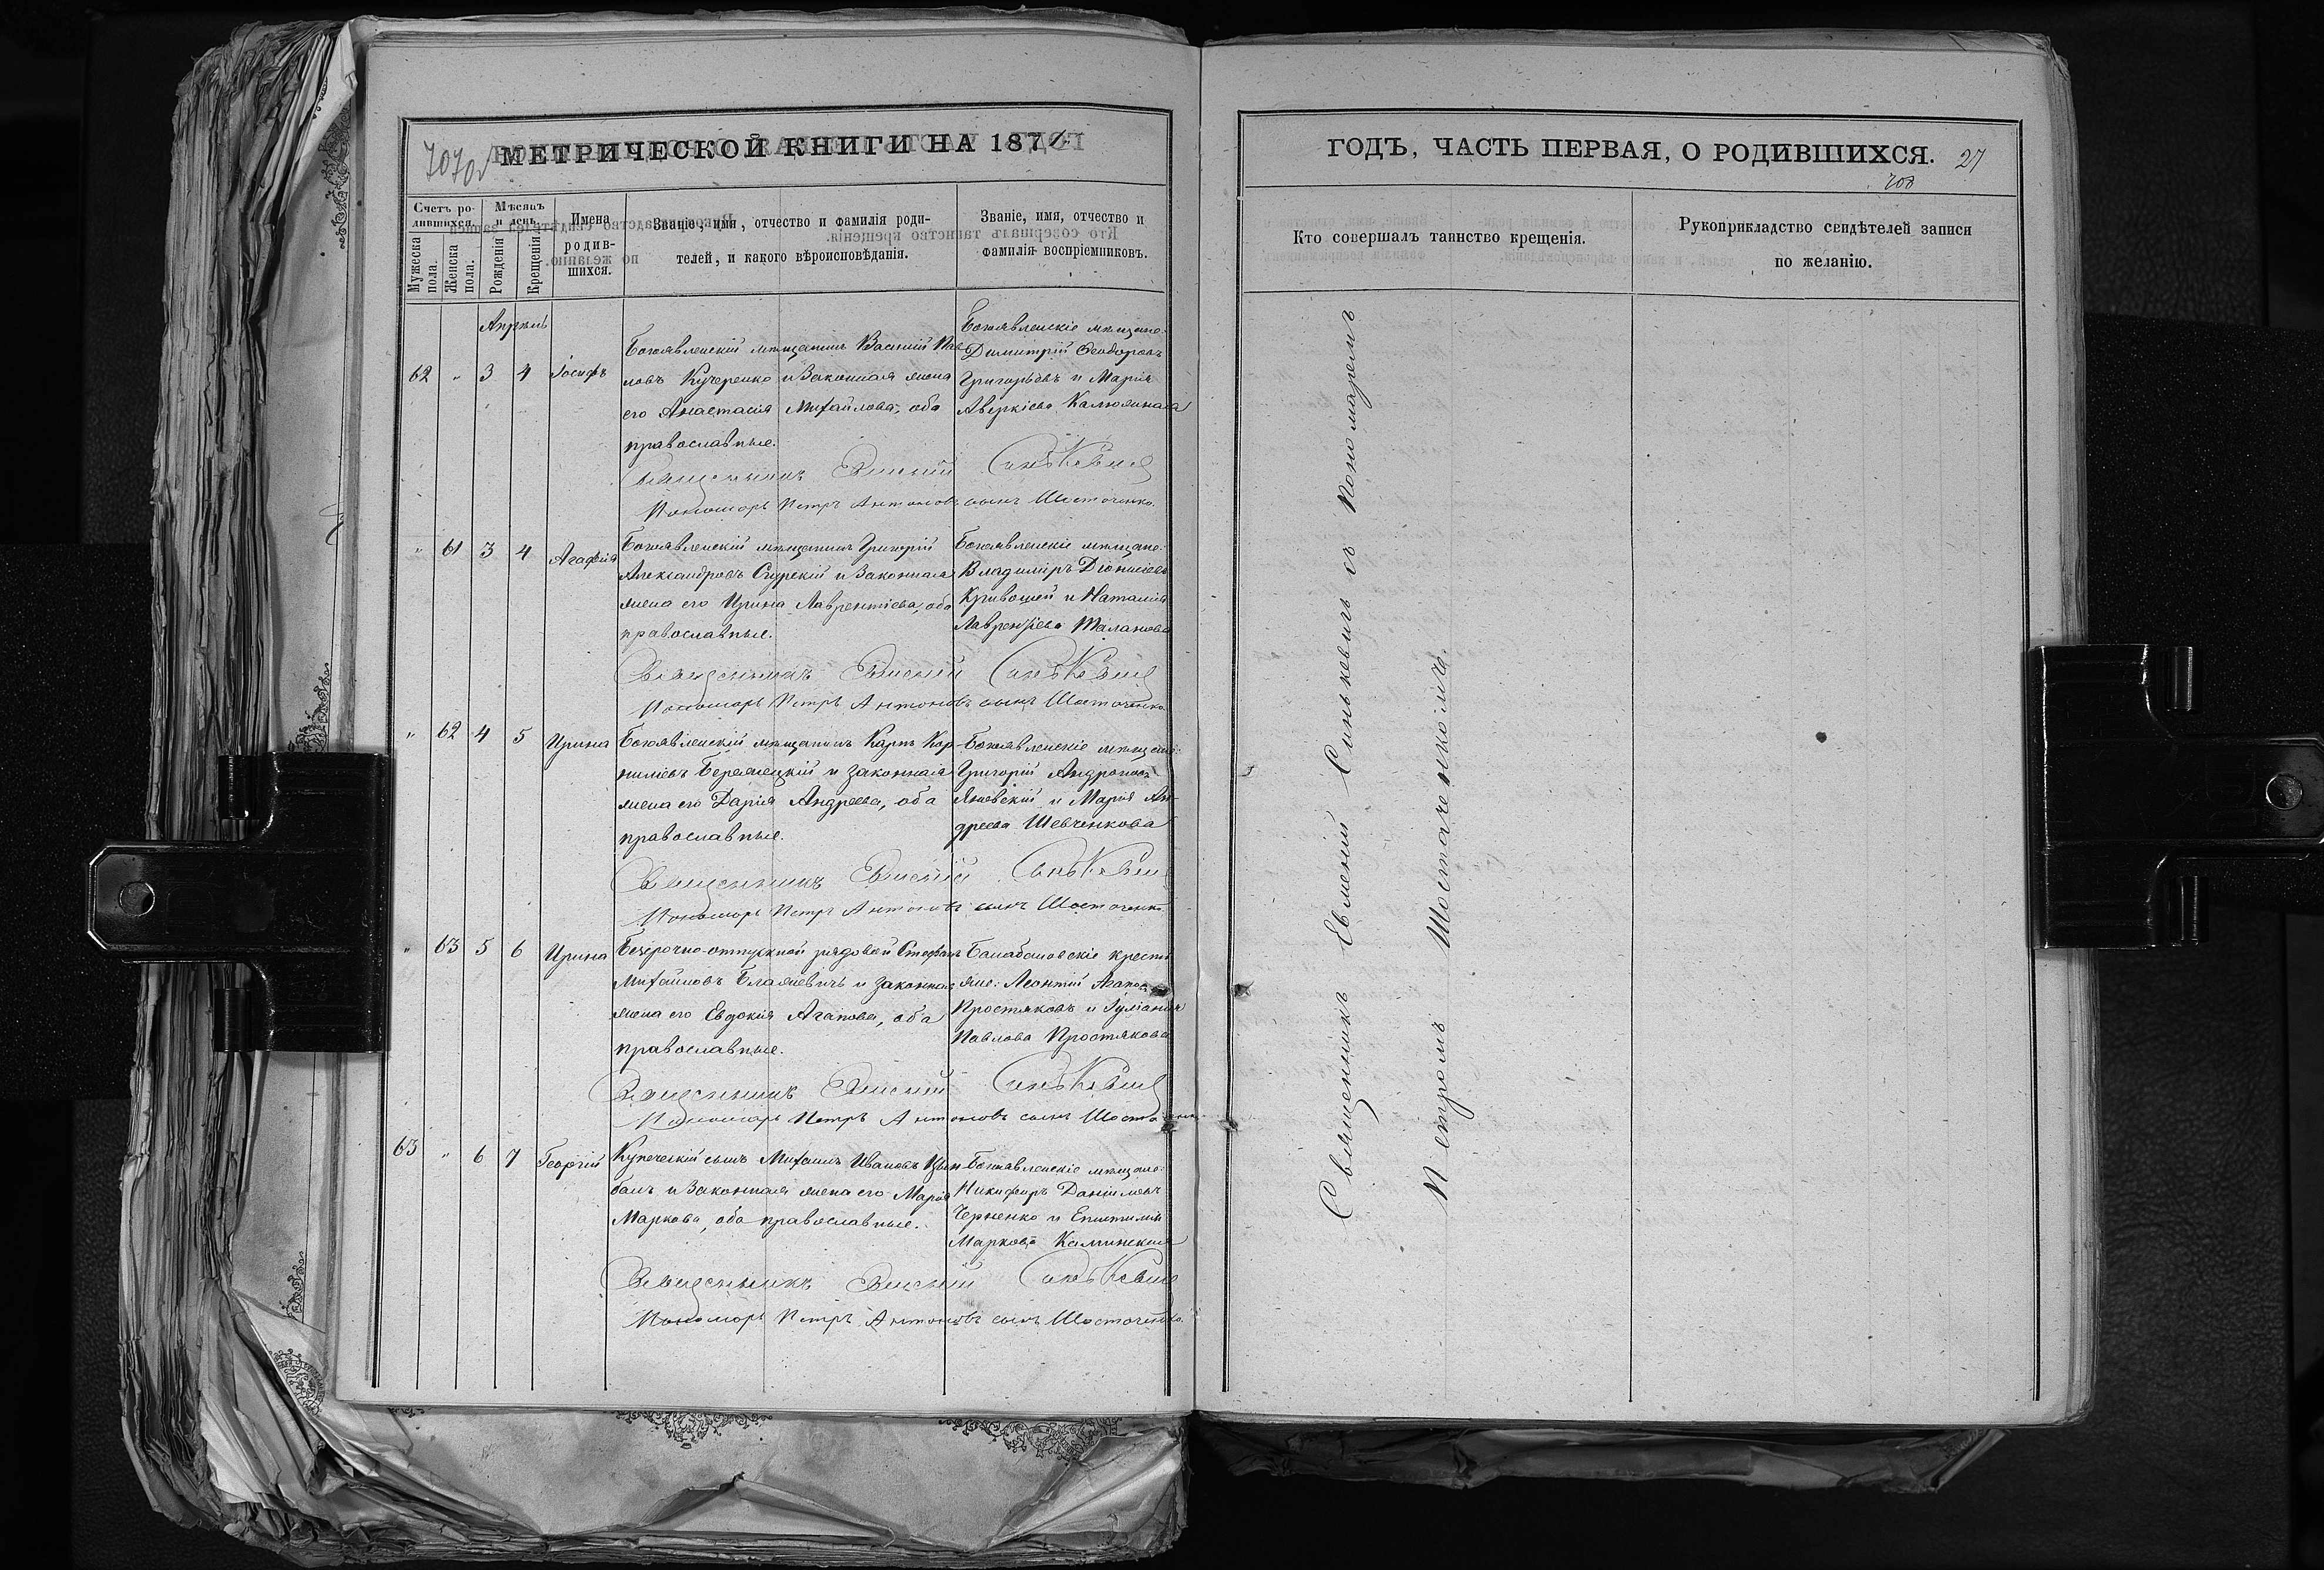 МЕТРИЧЕСКОЙ КНИГИ НА 187
Счетъ ро-
дившихся.
Мужеска
пола.
Женска
пола.
Мѣсяцъ
и день
Рожденія
Крещенія
Имена
родив-
шихся.
Званіе, имя, отчество и фамилія роди-
телей, и какого вѣроисповѣданія.
Званіе, имя, отчество и
фамилія воспріемниковъ.
Апрѣль
62 " 3 4 Іосифъ
Богоявленскій мѣщанинъ Василій Пав-
ловъ Кучеренко и законная жена
его Анастасія Михайлова, оба
православные.
Богоявленскіе мѣщане:
Димитрій Ѳеодоровъ
Григорьевъ и Марія
Аверкіева
Священникъ Евмений Синькевич
Пономарь Петръ Антоновъ сынъ Шостаченко.
" 61 3 4 Агафія
Богоявленскій мѣщанинъ Григорій
Александровъ Сгурскій и законная
жена его Ирина Лаврентіева, оба
православные.
Богоявленскіе мѣщане:
Владиміръ Діонисіевъ
Кривошей и Наталія
Лаврентіева Шаланова
Священникъ Евмений Синькевич
Пономарь Петръ Антоновъ сынъ Шостаченко
" 62 4 5 Ирина
Богоявленскій мѣщанинъ Карпъ Кор-
ниліевъ Бережецкій и законная
жена его Дарія Андреева, оба
православные.
Богоявленскіе мѣщане:
Григорій Андроновъ
Яневскій и Марія Ан-
дреева Шевченкова
Священникъ Евмений Синькевич
Пономарь Петръ Антоновъ сынъ Шостаченко
" 63 5 6 Ирина
Безсрочно-отпускной рядовой Стефанъ
Михайловъ Блажевичъ и законная
жена его Евдокія Агапова, оба
православные.
Балабановскіе крестья-
не: Леонтій Агаповъ
Простяковъ и Іуліанія
Павлова Простякова
Священникъ Евмений Синькевич
Пономарь Петръ Антоновъ сынъ Шостаченко
63 " 6 7 Георгій
Купеческій сынъ Михаилъ Ивановъ Цын-
балъ и законная жена его Марія
Маркова, оба православные.
Богоявленскіе мѣщане:
Никифоръ Даніиловъ
Черненко и Епистимія
Маркова Каминская
Священникъ Евмений Синькевич
Пономарь Петръ Антоновъ сынъ Шостаченко.
ГОДЪ, ЧАСТЬ ПЕРВАЯ, О РОДИВШИХСЯ. 27
708
Кто совершалъ таинство крещенія.
Рукоприкладство свидѣтелей записи
по желанію.
Священникъ Евменій Синькевичъ съ Пономаремъ
Петромъ Шостаченкомъ.